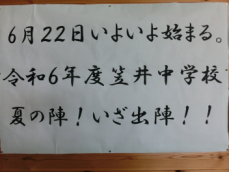 6月22日いよいよ始まる。
令和6年度笠井中学校
夏の陣！いざ出陣！！